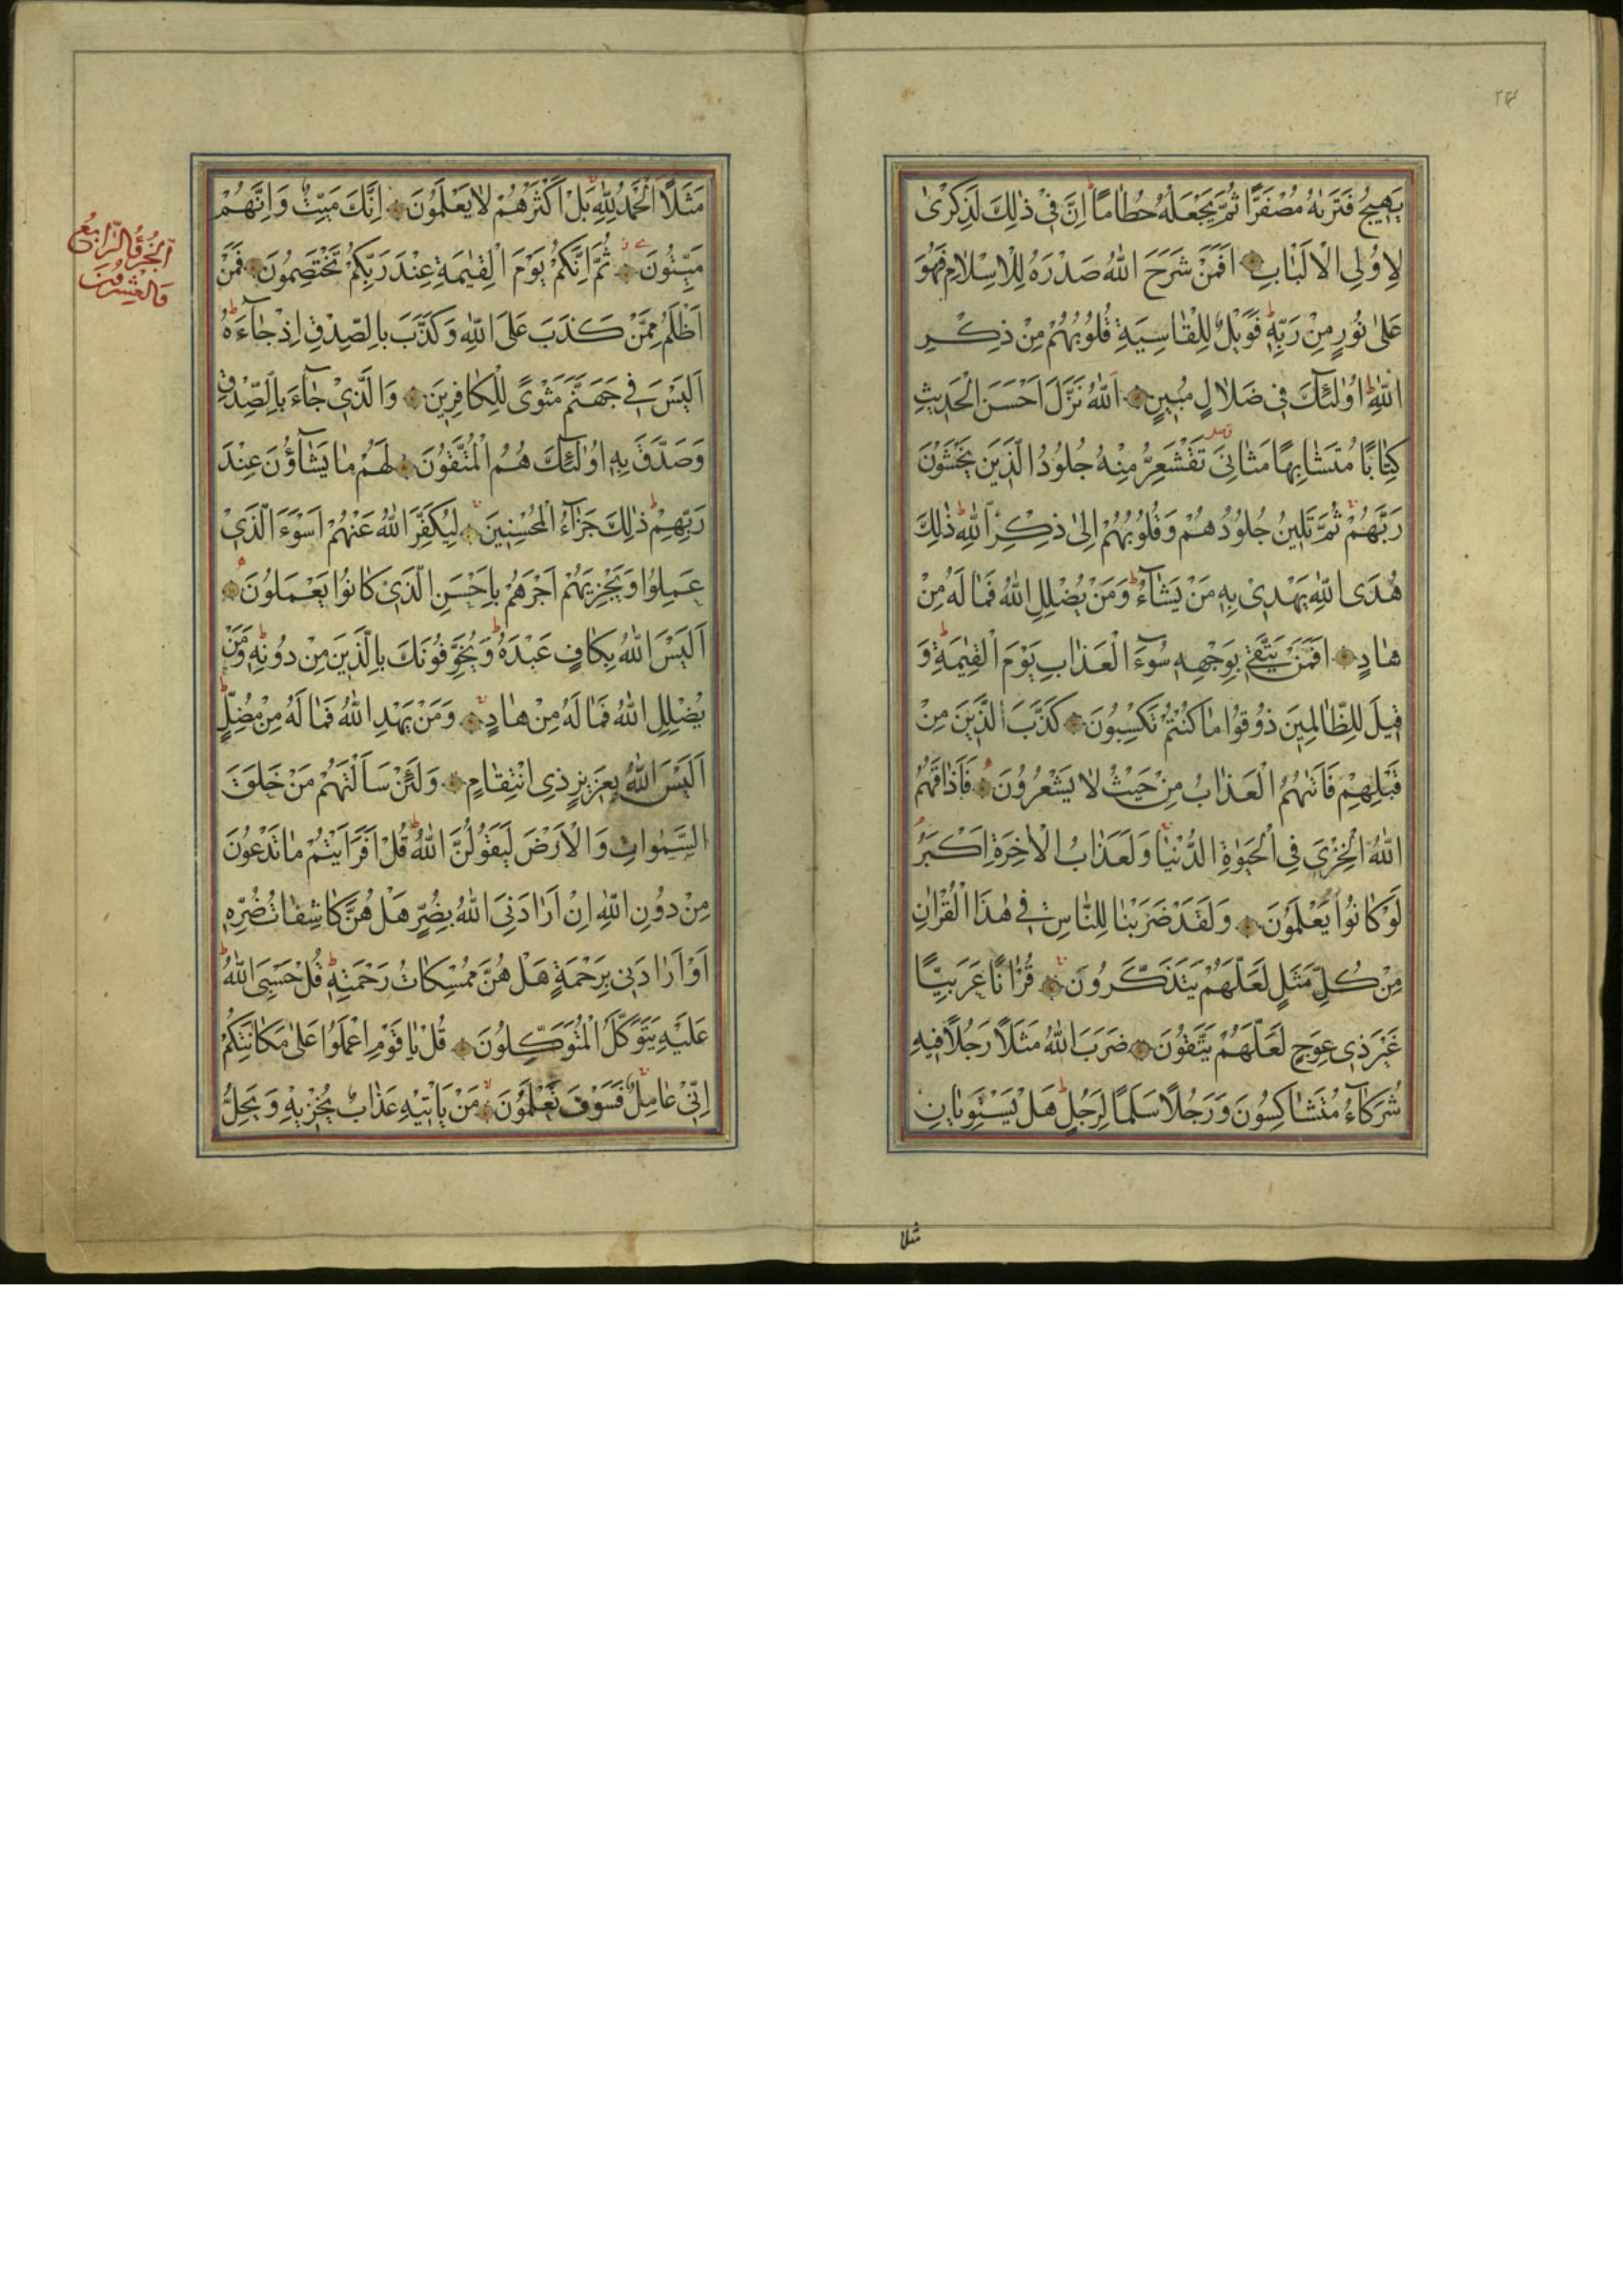 يَهِيجُ فَتَرٰيهُ مُصْفَرًّا ثُمَّ يَجْعَلُهُ حُطَامًا اِنَّ فِي ذٰلِكَ لَذِكْرٰى
لِاُولِى الْاَلْبَابِ اَفَمَنْ شَرَحَ اللّٰهُ صَدْرَهُ لِلْاِسْلَامِ فَهُوَ
عَلٰى نُورٍ مِنْ رَبِّهِ فَوَيْلٌ لِلْقَاسِيَةِ قُلُوبُهُمْ مِنْ ذِكْرِ
اللّٰهِ اُولٰئِكَ فِي ضَلَالٍ مُبِينٍ اَللّٰهُ نَزَّلَ اَحْسَنَ الْحَدِيثِ
كِتَابًا مُتَشَابِهًا مَثَانِيَ تَقْشَعِرُّ مِنْهُ جُلُودُ الَّذِينَ يَخْشَوْنَ
رَبَّهُمْ ثُمَّ تَلِينُ جُلُودُهُمْ وَقُلُوبُهُمْ اِلٰى ذِكْرِ اللّٰهِ ذٰلِكَ
هُدَى اللّٰهِ يَهْدِي بِهِ مَنْ يَشَاءُ وَمَنْ يُضْلِلِ اللّٰهُ فَمَا لَهُ مِنْ
هَادٍ اَفَمَنْ يَتَّقِي بِوَجْهِهِ سُوءَ الْعَذَابِ يَوْمَ الْقِيٰمَةِ وَ
قِيلَ لِلظَّالِمِينَ ذُوقُوا مَا كُنْتُمْ تَكْسِبُونَ كَذَّبَ الَّذِينَ مِنْ
قَبْلِهِمْ فَاَتٰيهُمُ الْعَذَابُ مِنْ حَيْثُ لَا يَشْعُرُونَ فَاَذَاقَهُمُ
اللّٰهُ الْخِزْيَ فِي الْحَيٰوةِ الدُّنْيَا وَلَعَذَابُ الْاٰخِرَةِ اَكْبَرُ
لَوْ كَانُوا يَعْلَمُونَ وَلَقَدْ ضَرَبْنَا لِلنَّاسِ فِي هٰذَا الْقُرْاٰنِ
مِنْ كُلِّ مَثَلٍ لَعَلَّهُمْ يَتَذَكَّرُونَ قُرْاٰنًا عَرَبِيًّا
غَيْرَ ذِي عِوَجٍ لَعَلَّهُمْ يَتَّقُونَ ضَرَبَ اللّٰهُ مَثَلًا رَجُلًا فِيهِ
شُرَكَاءُ مُتَشَاكِسُونَ وَرَجُلًا سَلَمًا لِرَجُلٍ هَلْ يَسْتَوِيَانِ
مثلا
مَثَلًا اَلْحَمْدُ لِلّٰهِ بَلْ اَكْثَرُهُمْ لَا يَعْلَمُونَ اِنَّكَ مَيِّتٌ وَاِنَّهُمْ
مَيِّتُونَ ثُمَّ اِنَّكُمْ يَوْمَ الْقِيٰمَةِ عِنْدَ رَبِّكُمْ تَخْتَصِمُونَ فَمَنْ
اَظْلَمُ مِمَّنْ كَذَبَ عَلَى اللّٰهِ وَكَذَّبَ بِالصِّدْقِ اِذْ جَاءَهُ
اَلَيْسَ فِي جَهَنَّمَ مَثْوًى لِلْكَافِرِينَ وَالَّذِي جَاءَ بِالصِّدْقِ
وَصَدَّقَ بِهِ اُولٰئِكَ هُمُ الْمُتَّقُونَ لَهُمْ مَا يَشَاؤُنَ عِنْدَ
رَبِّهِمْ ذٰلِكَ جَزَاءُ الْمُحْسِنِينَ لِيُكَفِّرَ اللّٰهُ عَنْهُمْ اَسْوَءَ الَّذِي
عَمِلُوا وَيَجْزِيَهُمْ اَجْرَهُمْ بِاَحْسَنِ الَّذِي كَانُوا يَعْمَلُونَ
اَلَيْسَ اللّٰهُ بِكَافٍ عَبْدَهُ وَيُخَوِّفُونَكَ بِالَّذِينَ مِنْ دُونِهِ وَمَنْ
يُضْلِلِ اللّٰهُ فَمَا لَهُ مِنْ هَادٍ وَمَنْ يَهْدِ اللّٰهُ فَمَا لَهُ مِنْ مُضِلٍّ
اَلَيْسَ اللّٰهُ بِعَزِيزٍ ذِي انْتِقَامٍ وَلَئِنْ سَاَلْتَهُمْ مَنْ خَلَقَ
السَّمٰوَاتِ وَالْاَرْضَ لَيَقُولُنَّ اللّٰهُ قُلْ اَفَرَاَيْتُمْ مَا تَدْعُونَ
مِنْ دُونِ اللّٰهِ اِنْ اَرَادَنِيَ اللّٰهُ بِضُرٍّ هَلْ هُنَّ كَاشِفَاتُ ضُرِّهِ
اَوْ اَرَادَنِي بِرَحْمَةٍ هَلْ هُنَّ مُمْسِكَاتُ رَحْمَتِهِ قُلْ حَسْبِيَ اللّٰهُ
عَلَيْهِ يَتَوَكَّلُ الْمُتَوَكِّلُونَ قُلْ يَا قَوْمِ اعْمَلُوا عَلٰى مَكَانَتِكُمْ
اِنِّي عَامِلٌ فَسَوْفَ تَعْلَمُونَ مَنْ يَاْتِيهِ عَذَابٌ يُخْزِيهِ وَيَحِلُّ
اَلْجُزْؤُ الرَّابِعُ
وَالْعِشْرُونَ